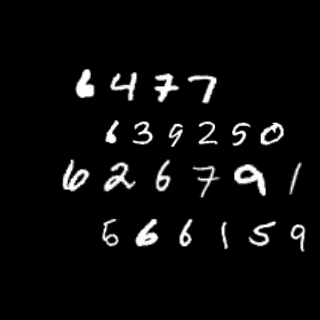 6477
639250
626791
566159